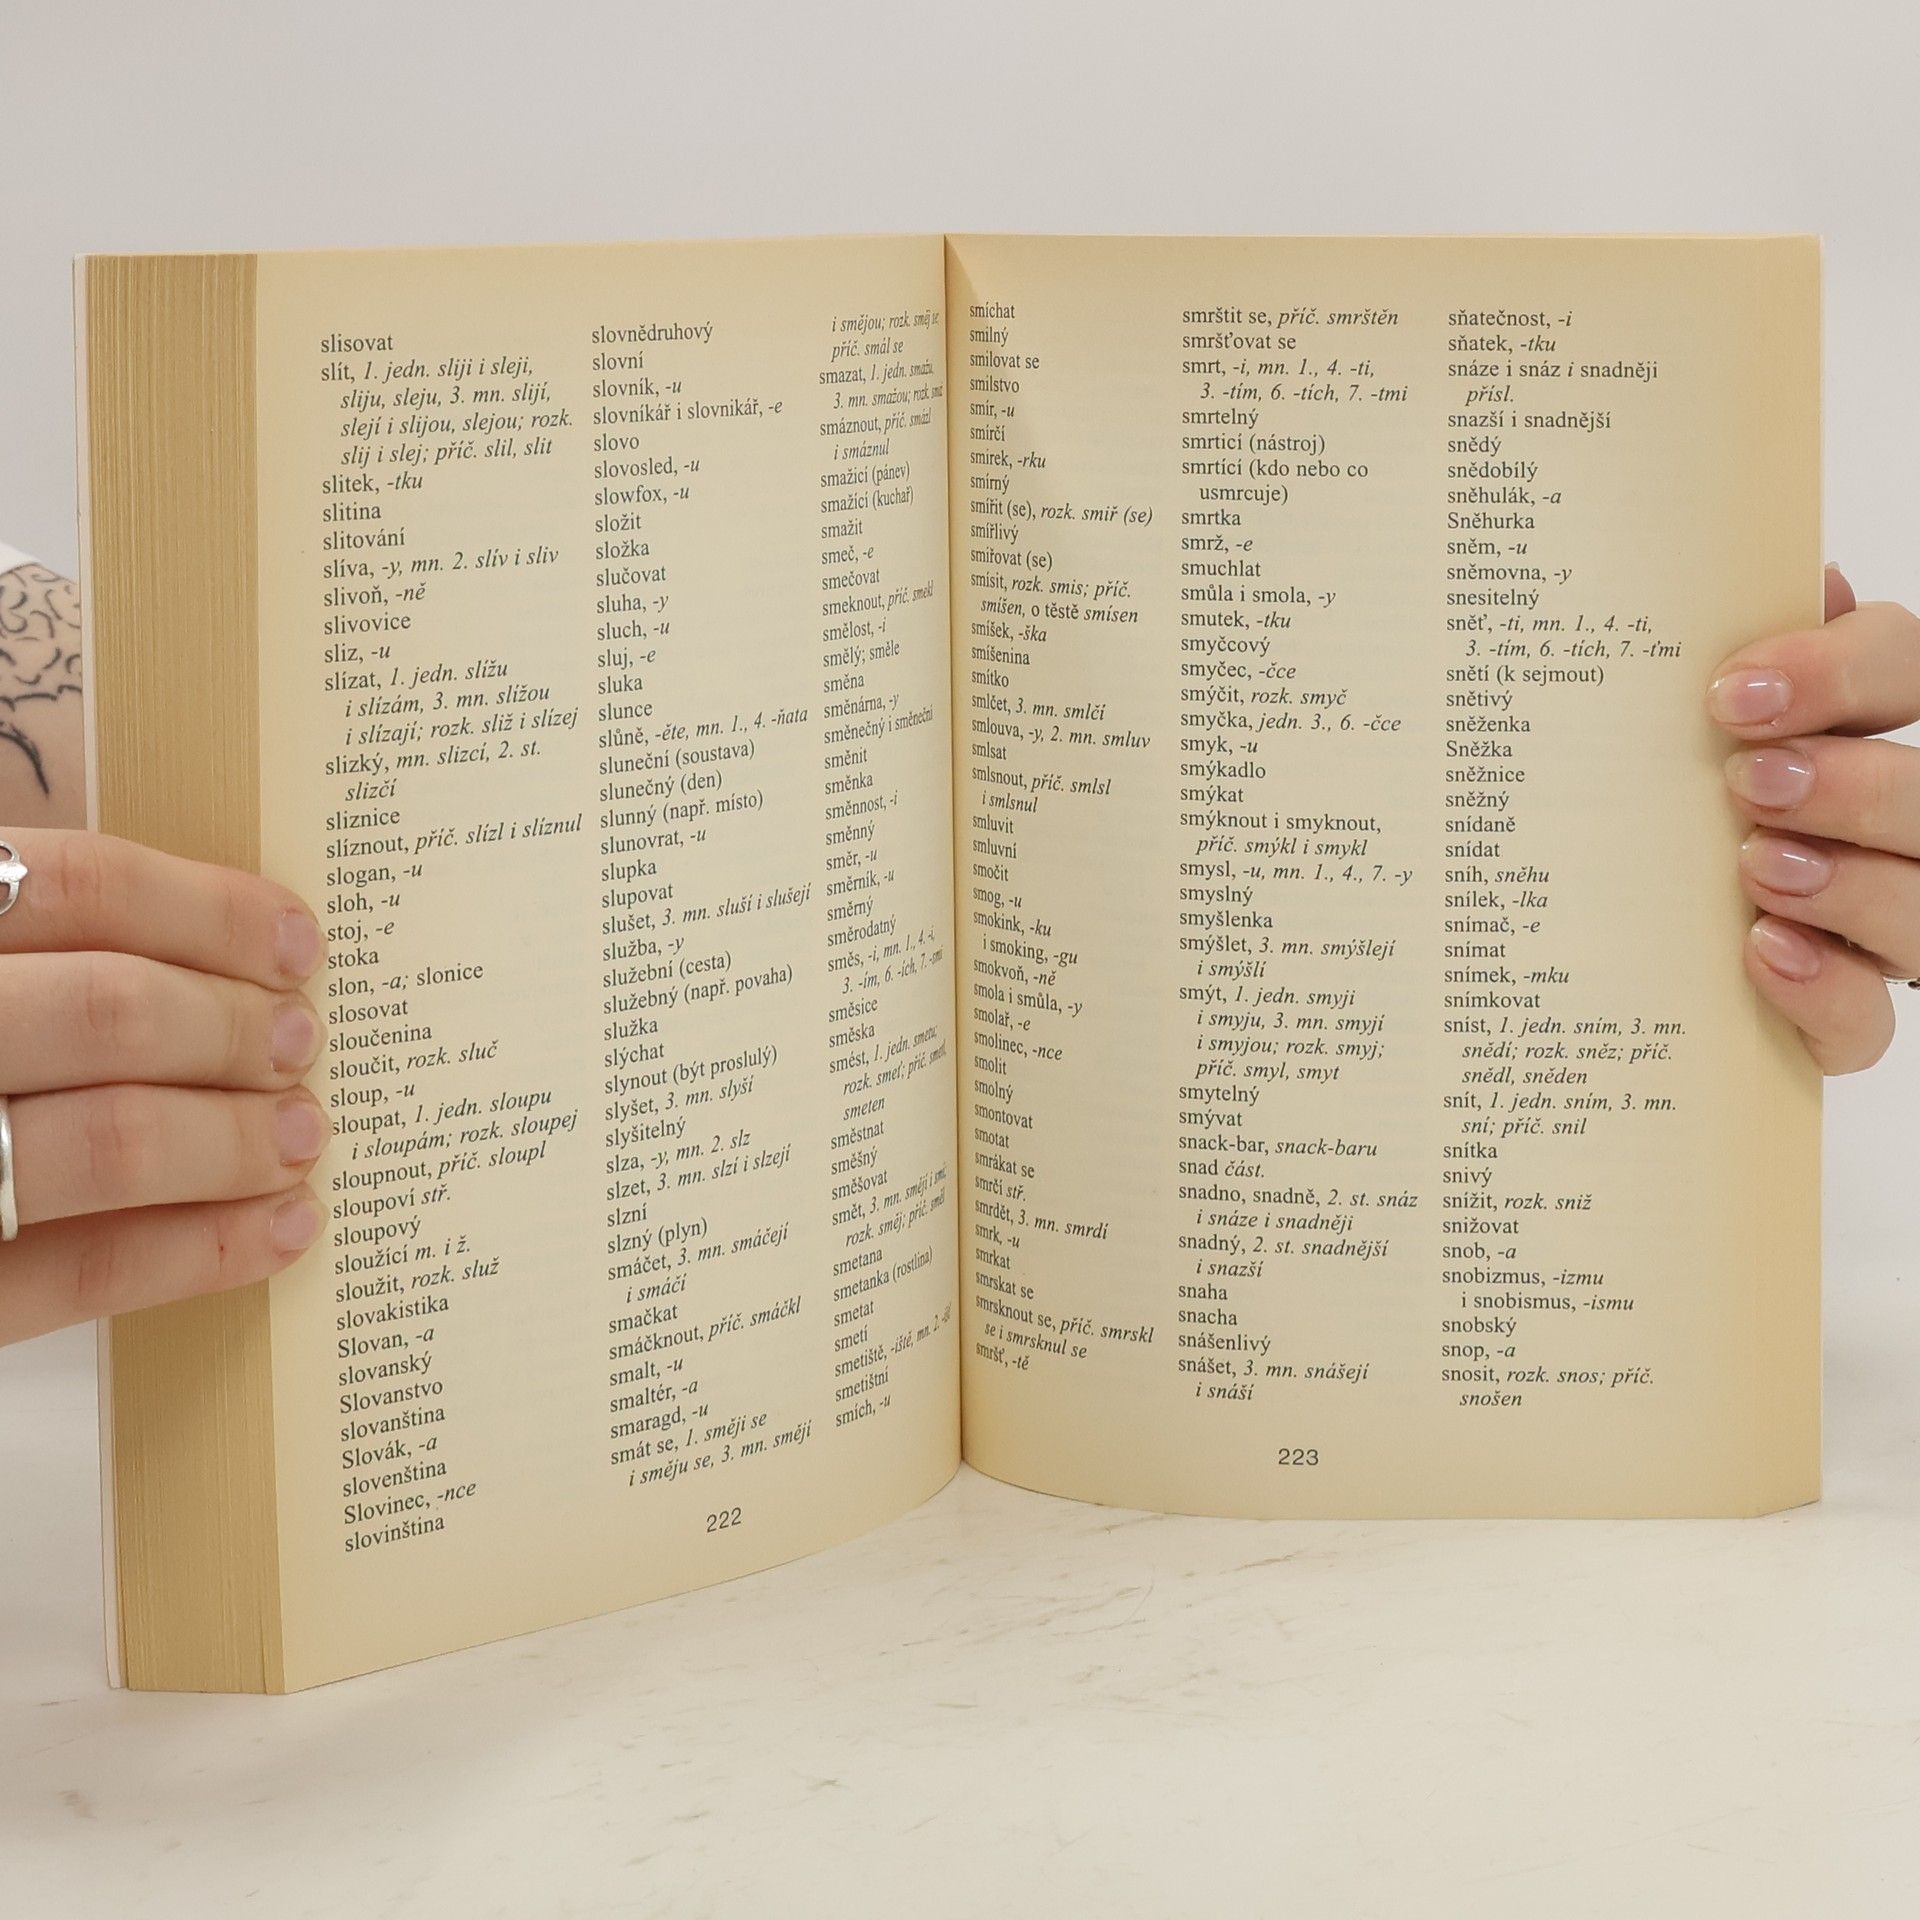 slisovat
slít, 1. jedn. sliji i sleji,
sliju, sleju, 3. mn. slijí,
slejí i slijou, slejou; rozk.
slij i slej; příč. slil, slit
slitek, -tku
slitina
slitování
slíva, -y, mn. 2. slív i sliv
slivoň, -ně
slivovice
sliz, -u
slízat, 1. jedn. slížu
i slízám, 3. mn. slížou
i slízají; rozk. sliž i slízej
slizký, mn. slizcí, 2. st.
slizčí
sliznice
slíznout, příč. slízl i slíznul
slogan, -u
sloh, -u
stoj, -e
stoka
slon, -a; slonice
slosovat
sloučenina
sloučit, rozk. sluč
sloup, -u
sloupat, 1. jedn. sloupu
i sloupám; rozk. sloupej
sloupnout, příč. sloupl
sloupoví stř.
sloupový
sloužící m. i ž.
sloužit, rozk. služ
slovakistika
Slovan, -a
slovanský
Slovanstvo
slovanština
Slovák, -a
slovenština
Slovinec, -nce
slovinština
slovnědruhový
slovní
slovník, -u
slovníkář i slovnikář, -e
slovo
slovosled, -u
slowfox, -u
složit
složka
slučovat
sluha, -y
sluch, -u
sluj, -e
sluka
slunce
slůně, -ěte, mn. 1., 4. -ňata
sluneční (soustava)
slunečný (den)
slunný (např. místo)
slunovrat, -u
slupka
slupovat
slušet, 3. mn. sluší i slušejí
služba, -y
služební (cesta)
služebný (např. povaha)
služka
slýchat
slynout (být proslulý)
slyšet, 3. mn. slyší
slyšitelný
slza, -y, mn. 2. slz
slzet, 3. mn. slzí i slzejí
slzní
slzný (plyn)
smáčet, 3. mn. smáčejí
i smáčí
smačkat
smáčknout, příč. smáčkl
smalt, -u
smaltér, -a
smaragd, -u
smát se, 1. směji se
i směju se, 3. mn. smějí
i smějou; rozk. směj se
příč. smál se
smazat, 1. jedn. smažu,
3. mn. smažou; rozk.
smáznout, příč. smázl
i smáznul
smažicí (pánev)
smažící (kuchař)
smažit
smeč, -e
smečovat
smeknout, příč. smekl
smělost, -i
smělý; směle
směna
směnárna, -y
směnečný i směneční
směnit
směnka
směnnost, -i
směnný
směr, -u
směrník, -u
směrný
směrodatný
směs, -i, mn. 1., 4. -i,
3. -ím, 6. -ích, 7. -mi
směsice
směska
smést, 1. jedn. smetu;
rozk. smeť; příč. smetl,
smeten
směstnat
směšný
směšovat
smět, 3. mn. smějí i smí;
rozk. směj; příč. směl
smetana
smetanka (rostlina)
smetat
smetí
smetiště, -iště, mn. 2. -išť
smetištní
smích, -u
222
smíchat
smilný
smilovat se
smilstvo
smír, -u
smírčí
smírek, -rku
smírný
smířit (se), rozk. smiř (se)
smířlivý
smiřovat (se)
smísit, rozk. smis; příč.
smíšen, o těstě smísen
smíšek, -ška
smíšenina
smítko
smlčet, 3. mn. smlčí
smlouva, -y, 2. mn. smluv
smlsat
smlsnout, příč. smlsl
i smlsnul
smluvit
smluvní
smočit
smog, -u
smokink, -ku
i smoking, -gu
smokvoň, -ně
smola i smůla, -y
smolař, -e
smolinec, -nce
smolit
smolný
smontovat
smotat
smrákat se
smrčí stř.
smrdět, 3. mn. smrdí
smrk, -u
smrkat
smrskat se
smrsknout se, příč. smrskl
se i smrsknul se
smršť, -tě
smrštit se, příč. smrštěn
smršťovat se
smrt, -i, mn. 1., 4. -ti,
3. -tím, 6. -tích, 7. -tmi
smrtelný
smrticí (nástroj)
smrtící (kdo nebo co
usmrcuje)
smrtka
smrž, -e
smuchlat
smůla i smola, -y
smutek, -tku
smyčcový
smyčec, -čce
smýčit, rozk. smyč
smyčka, jedn. 3., 6. -čce
smyk, -u
smýkadlo
smýkat
smýknout i smyknout,
příč. smýkl i smykl
smysl, -u, mn. 1., 4., 7. -y
smyslný
smyšlenka
smýšlet, 3. mn. smýšlejí
i smýšlí
smýt, 1. jedn. smyji
i smyju, 3. mn. smyjí
i smyjou; rozk. smyj;
příč. smyl, smyt
smytelný
smývat
snack-bar, snack-baru
snad část.
snadno, snadně, 2. st. snáz
i snáze i snadněji
snadný, 2. st. snadnější
i snazší
snaha
snacha
snášenlivý
snášet, 3. mn. snášejí
i snáší
sňatečnost, -i
sňatek, -tku
snáze i snáz i snadněji
přísl.
snazší i snadnější
snědý
snědobílý
sněhulák, -a
Sněhurka
sněm, -u
sněmovna, -y
snesitelný
sněť, -ti, mn. 1., 4. -ti,
3. -tím, 6. -tích, 7. -ťmi
snětí (k sejmout)
snětivý
sněženka
Sněžka
sněžnice
sněžný
snídaně
snídat
sníh, sněhu
snílek, -lka
snímač, -e
snímat
snímek, -mku
snímkovat
sníst, 1. jedn. sním, 3. mn.
snědí; rozk. sněz; příč.
snědl, sněden
snít, 1. jedn. sním, 3. mn.
sní; příč. snil
snítka
snivý
snížit, rozk. sniž
snižovat
snob, -a
snobizmus, -izmu
i snobismus, -ismu
snobský
snop, -a
snosit, rozk. snos; příč.
snošen
223